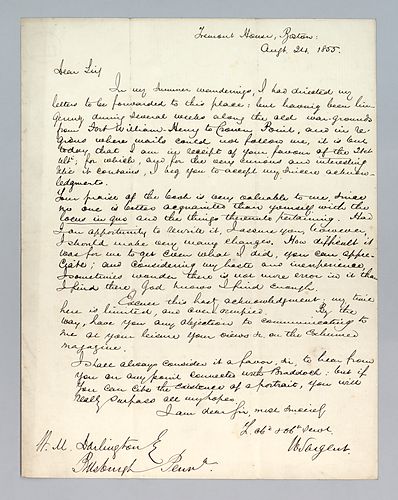 Tremont House, Boston:
Augt. 24. 1855.
Dear Sir,
In my summer wanderings, I had directed my
letters to be forwarded to this place: but having been lin-
gering during several weeks along the old war-grounds
from Fort William-Henry to Crown Point, and in re-
gions where mails could not follow me, it is but
today that I am in receipt of your favor of the 21st
ult: for which, and for the very curious and interesting
it contains, I beg you to accept my sincere acknow-
ledgments.
Your praise of the book is very valuable to me, since
no one is better acquainted than yourself with the
locus in quo and the things thereunto pertaining. Had
I an opportunity to rewrite it, I assure you, however,
I should make very many changes. How difficult it
was for me to get even what I did, you can appre-
ciate; and considering my haste and inexperience,
I sometimes wonder there is not more error in it than
I find there. God knows I find enough.
Excuse this hasty acknowledgment; my time
here is limited, and over occupied. By the
way, have you any objection to communicating to
me at your leisure your views &c on the
magazine.
I shall always consider it a favor, Sir, to hear from
you on any point connected with Braddock: but if
you can cite the existence of a portrait, you will
really surpass all my hopes.
I am dear Sir, most sincerely
Y. obt. & obd. Servt.
W Sargent.
W. M. Darlington Eq
Pittsburgh Penna.